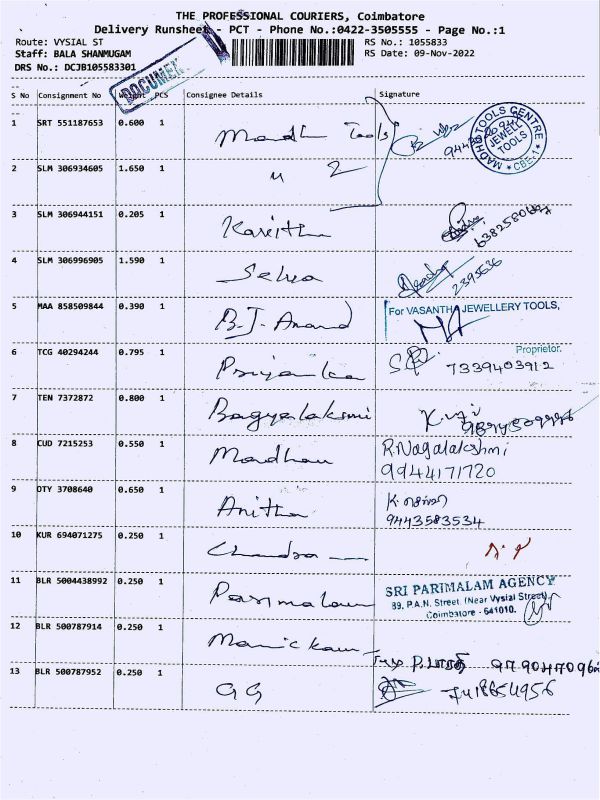 THE PROFESSIONAL COURIERS, Coimbatore
Delivery Runsheet - PCT - Phone No.:0422-3505555 - Page No.:1
Route: VYSIAL ST RS No.: 1055833
Staff: BALA SHANMUGAM RS Date: 09-Nov-2022
DRS No.: DCJB105583301
DOCUMEN
S No Consignment No Weight PCS Consignee Details Signature
1 SRT 551187653 0.600 1 Madhu Tools
MADHU TOOLS CENTRE JEWELL TOOLS * CBE-1 *
2 SLM 306934605 1.650 1 " 2
3 SLM 306944151 0.205 1 Kavitha
4 SLM 306996905 1.590 1 Selva 2395636
5 MAA 858509844 0.390 1 B.J. Anand For VASANTHA JEWELLERY TOOLS,
Proprietor.
6 TCG 40294244 0.795 1 Priyanka 7339403912
7 TEN 7372872 0.800 1 Bagyalaksmi
8 CUD 7215253 0.550 1 Madhau R.Nagalakshmi
9944171720
9 OTY 3708640 0.650 1 Anitha
9443583534
10 KUR 694071275 0.250 1 Chandra
11 BLR 5004438992 0.250 1 Parimalam SRI PARIMALAM AGENCY
89, P.A.N. Street, (Near Vysial Street)
Coimbatore - 641010.
12 BLR 500787914 0.250 1 Manickam
13 BLR 500787952 0.250 1 GG 7418654956